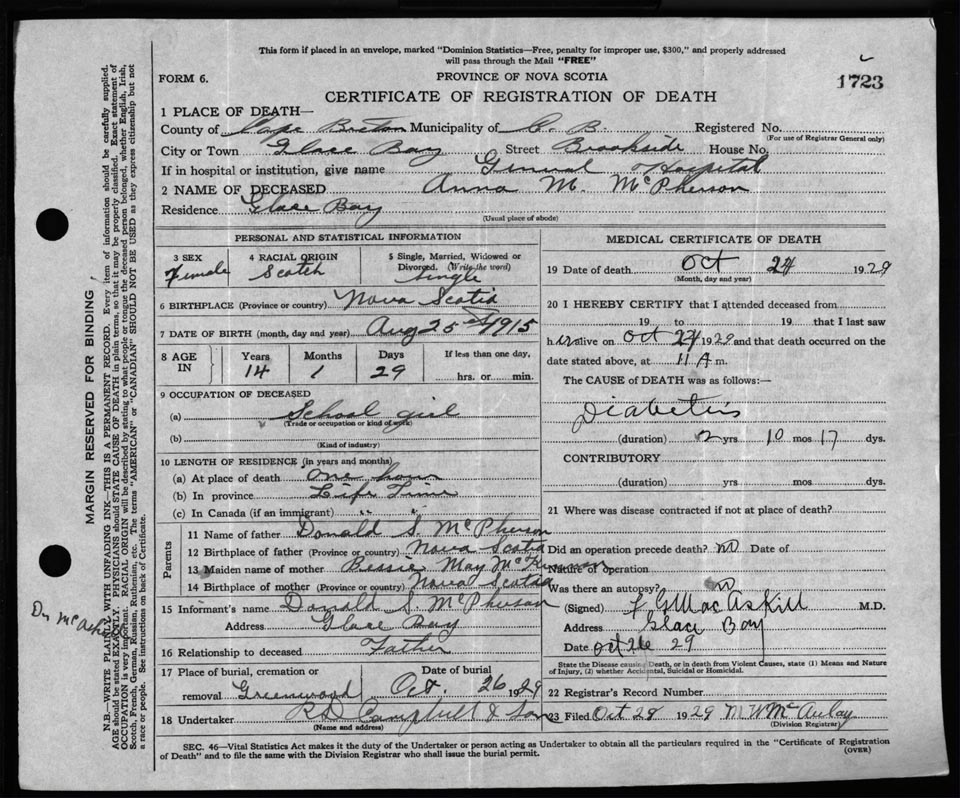 This form if placed in an envelope, marked "Dominion Statistics—Free, penalty for improper use, $300," and properly addressed
will pass through the Mail "FREE"
FORM 6.
PROVINCE OF NOVA SCOTIA
1723
CERTIFICATE OF REGISTRATION OF DEATH
1 PLACE OF DEATH—
County of Cape Breton Municipality of C. B. Registered No.
(For use of Registrar General only)
City or Town Glace Bay Street Brookside House No.
If in hospital or institution, give name General Hospital
2 NAME OF DECEASED Anna M. McPherson
Residence Glace Bay
(Usual place of abode)
PERSONAL AND STATISTICAL INFORMATION
3 SEX Female
4 RACIAL ORIGIN Scotch
5 Single, Married, Widowed or Divorced. (Write the word) Single
6 BIRTHPLACE (Province or country) Nova Scotia
7 DATE OF BIRTH (month, day and year) Aug 25 1915
8 AGE IN Years 14 Months 1 Days 29 If less than one day, hrs. or min.
9 OCCUPATION OF DECEASED
(a) School girl
(Trade or occupation or kind of work)
(b)
(Kind of industry)
10 LENGTH OF RESIDENCE (in years and months)
(a) At place of death one hour
(b) In province Life Time
(c) In Canada (if an immigrant) " "
Parents
11 Name of father Donald S. McPherson
12 Birthplace of father (Province or country) Nova Scotia
13 Maiden name of mother Bessie May
14 Birthplace of mother (Province or country) Nova Scotia
15 Informant's name Donald S. McPherson
Address Glace Bay
16 Relationship to deceased Father
17 Place of burial, cremation or removal Greenwood Date of burial Oct. 26 1929
18 Undertaker Campbell & Son
(Name and address)
MEDICAL CERTIFICATE OF DEATH
19 Date of death Oct 24 1929
(Month, day and year)
20 I HEREBY CERTIFY that I attended deceased from
19 to 19 that I last saw
her alive on Oct 24 1929 and that death occurred on the
date stated above, at 11 A. m.
The CAUSE of DEATH was as follows:—
Diabetis
(duration) 2 yrs 10 mos 17 dys.
CONTRIBUTORY
(duration) yrs mos dys.
21 Where was disease contracted if not at place of death?
Did an operation precede death? no Date of
Nature of operation
Was there an autopsy? no
(Signed) MacAskill M.D.
Address Glace Bay
Date Oct 26 29
State the Disease causing Death, or in death from Violent Causes, state (1) Means and Nature
of Injury, (2) whether Accidental, Suicidal or Homicidal.
22 Registrar's Record Number
23 Filed Oct 28 1929 M W McAulay
(Division Registrar)
SEC. 46—Vital Statistics Act makes it the duty of the Undertaker or person acting as Undertaker to obtain all the particulars required in the "Certificate of Registration
of Death" and to file the same with the Division Registrar who shall issue the burial permit.
(OVER)
MARGIN RESERVED FOR BINDING
N.B.—WRITE PLAINLY WITH UNFADING INK—THIS IS A PERMANENT RECORD. Every item of information should be carefully supplied.
AGE should be stated EXACTLY. PHYSICIANS should STATE CAUSE OF DEATH in plain terms, that it may be properly classified. Exact statement of
OCCUPATION is very important. RACIAL ORIGIN will be described by stating to what people or tongue the deceased person belonged, whether English, Irish,
Scotch, French, German, Russian, Ruthenian, etc. The terms "AMERICAN" or "CANADIAN" SHOULD NOT BE USED as they express citizenship but not
a race or people. See instructions on back of Certificate.